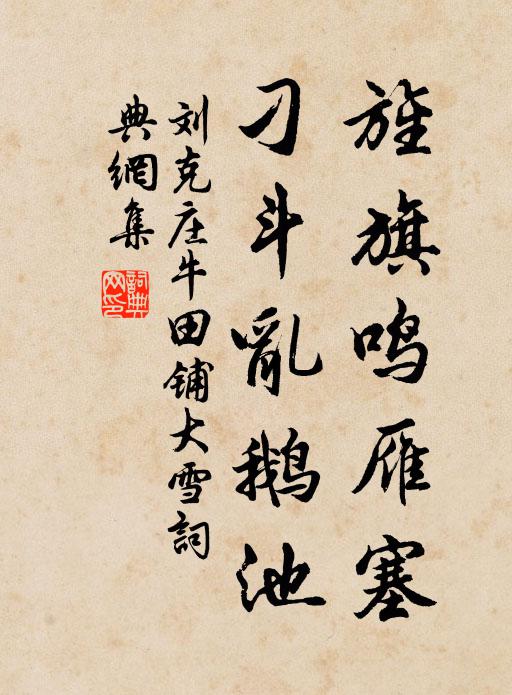 旌旗鸣雁塞
刁斗亂鹅池
刘克庄牛田铺大雪詞
典網集
詞典
网印